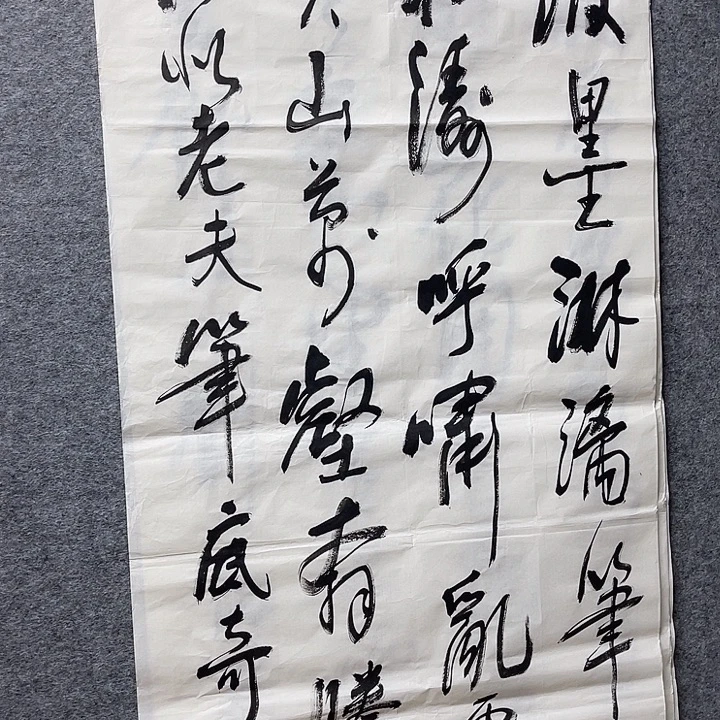 墨淋漓筆
濤呼嘯亂
山萬壑有勝
似老夫筆底奇